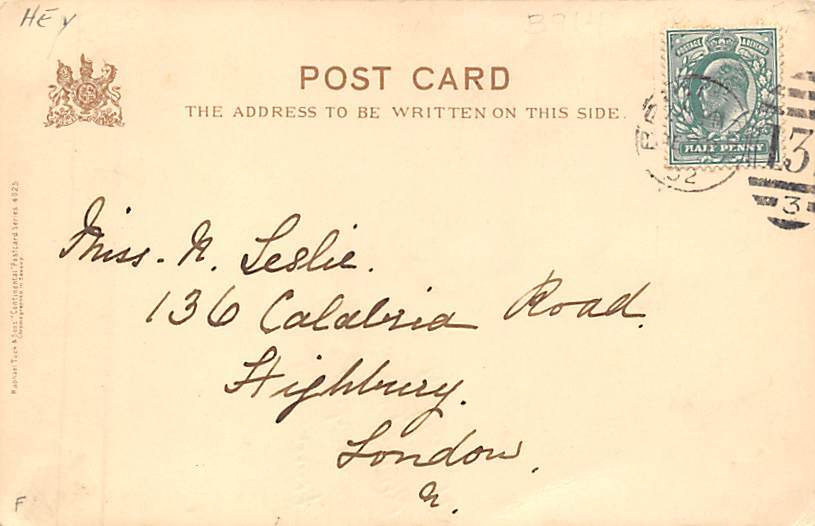 HEY
POST CARD
THE ADDRESS TO BE WRITTEN ON THIS SIDE.
POSTAGE & REVENUE
HALF PENNY
02
13
3
Miss. N. Leslie.
136 Calabria Road.
Highbury.
London.
N.
Raphael Tuck & Sons' "Continental" Postcard Series 4025
Chromographed in Saxony
F